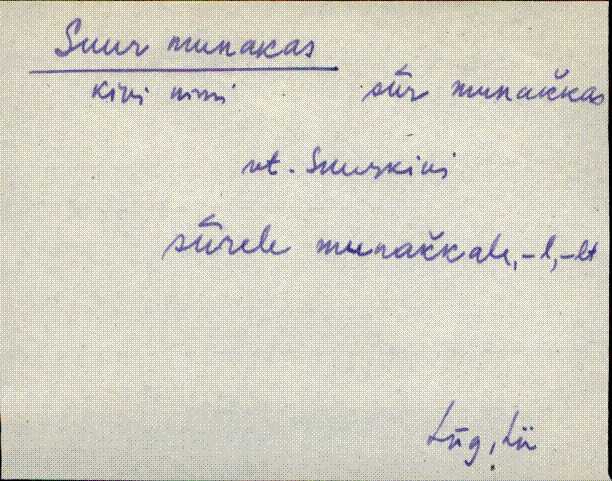 Suur munakas
kivi nimi sūr munak̆kas
vt. Suurkivi
sūrele munak̆kale, -l, -lt
Lüg, Lü